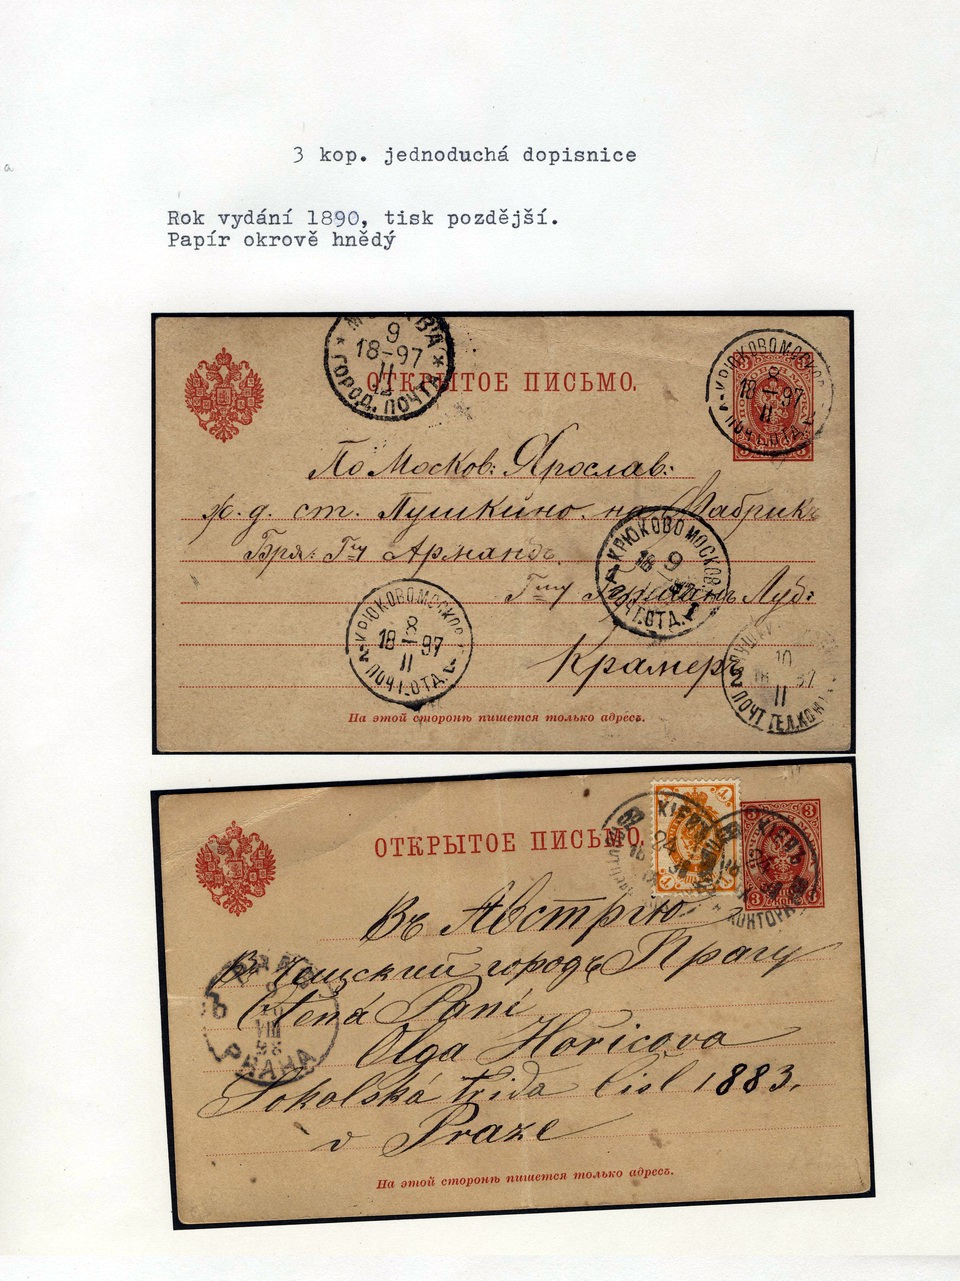 3 kop. jednoduchá dopisnice
Rok vydání 1890, tisk pozdější.
Papír okrově hnědý
МОСКВА
9
18-97
II
12
ГОРОД. ПОЧТА
ОТКРЫТОЕ ПИСЬМО.
КРЮКОВО МОСКОВ
8
18-97
II
ПОЧТ. ОТД.
По Москов: Ярослав:
ж. д. ст. Пушкино на Фабрик
Бря: Гг Арманд
КРЮКОВО МОСКОВ.
18 9
ПОЧТ. ОТД. 1
Герман Луд:
КРЮКОВО МОСКОВ
8
18-97
II
ПОЧТ. ОТД.
Крамеръ
10
II
ПОЧТ ТЕЛ. КОН
На этой сторонѣ пишется только адресъ.
ОТКРЫТОЕ ПИСЬМО.
КІЕВЪ
КІЕВЪ
КОНТОРА
3
3
3
Въ Австрію
В Чешский городъ Прагу
Ctená Paní
Olga Hořicova
Sokolská třida čisl 1883.
v Praze
PRAG
9
VIII
98
PRAHA
На этой сторонѣ пишется только адресъ.